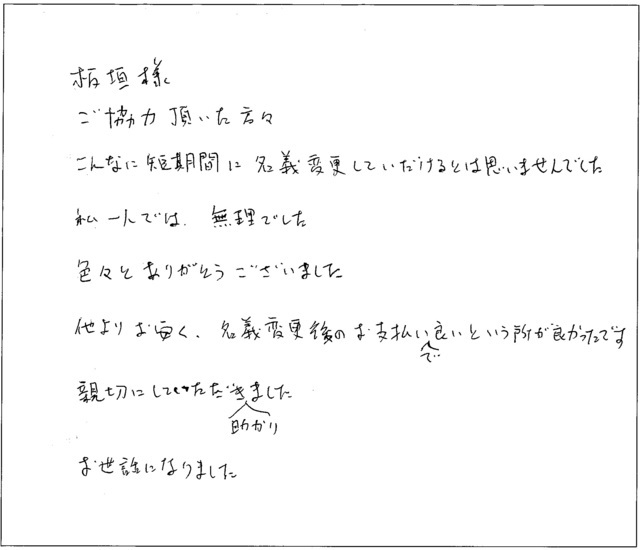 板垣様
ご協力頂いた方々
こんなに短期間に名義変更していだけるとは思いませんでした
私一人では、無理でした
色々とありがとうございました
他よりお安く、名義変更後のお支払いで良いという所が良かったです
親切にしていただき助かりました
お世話になりました